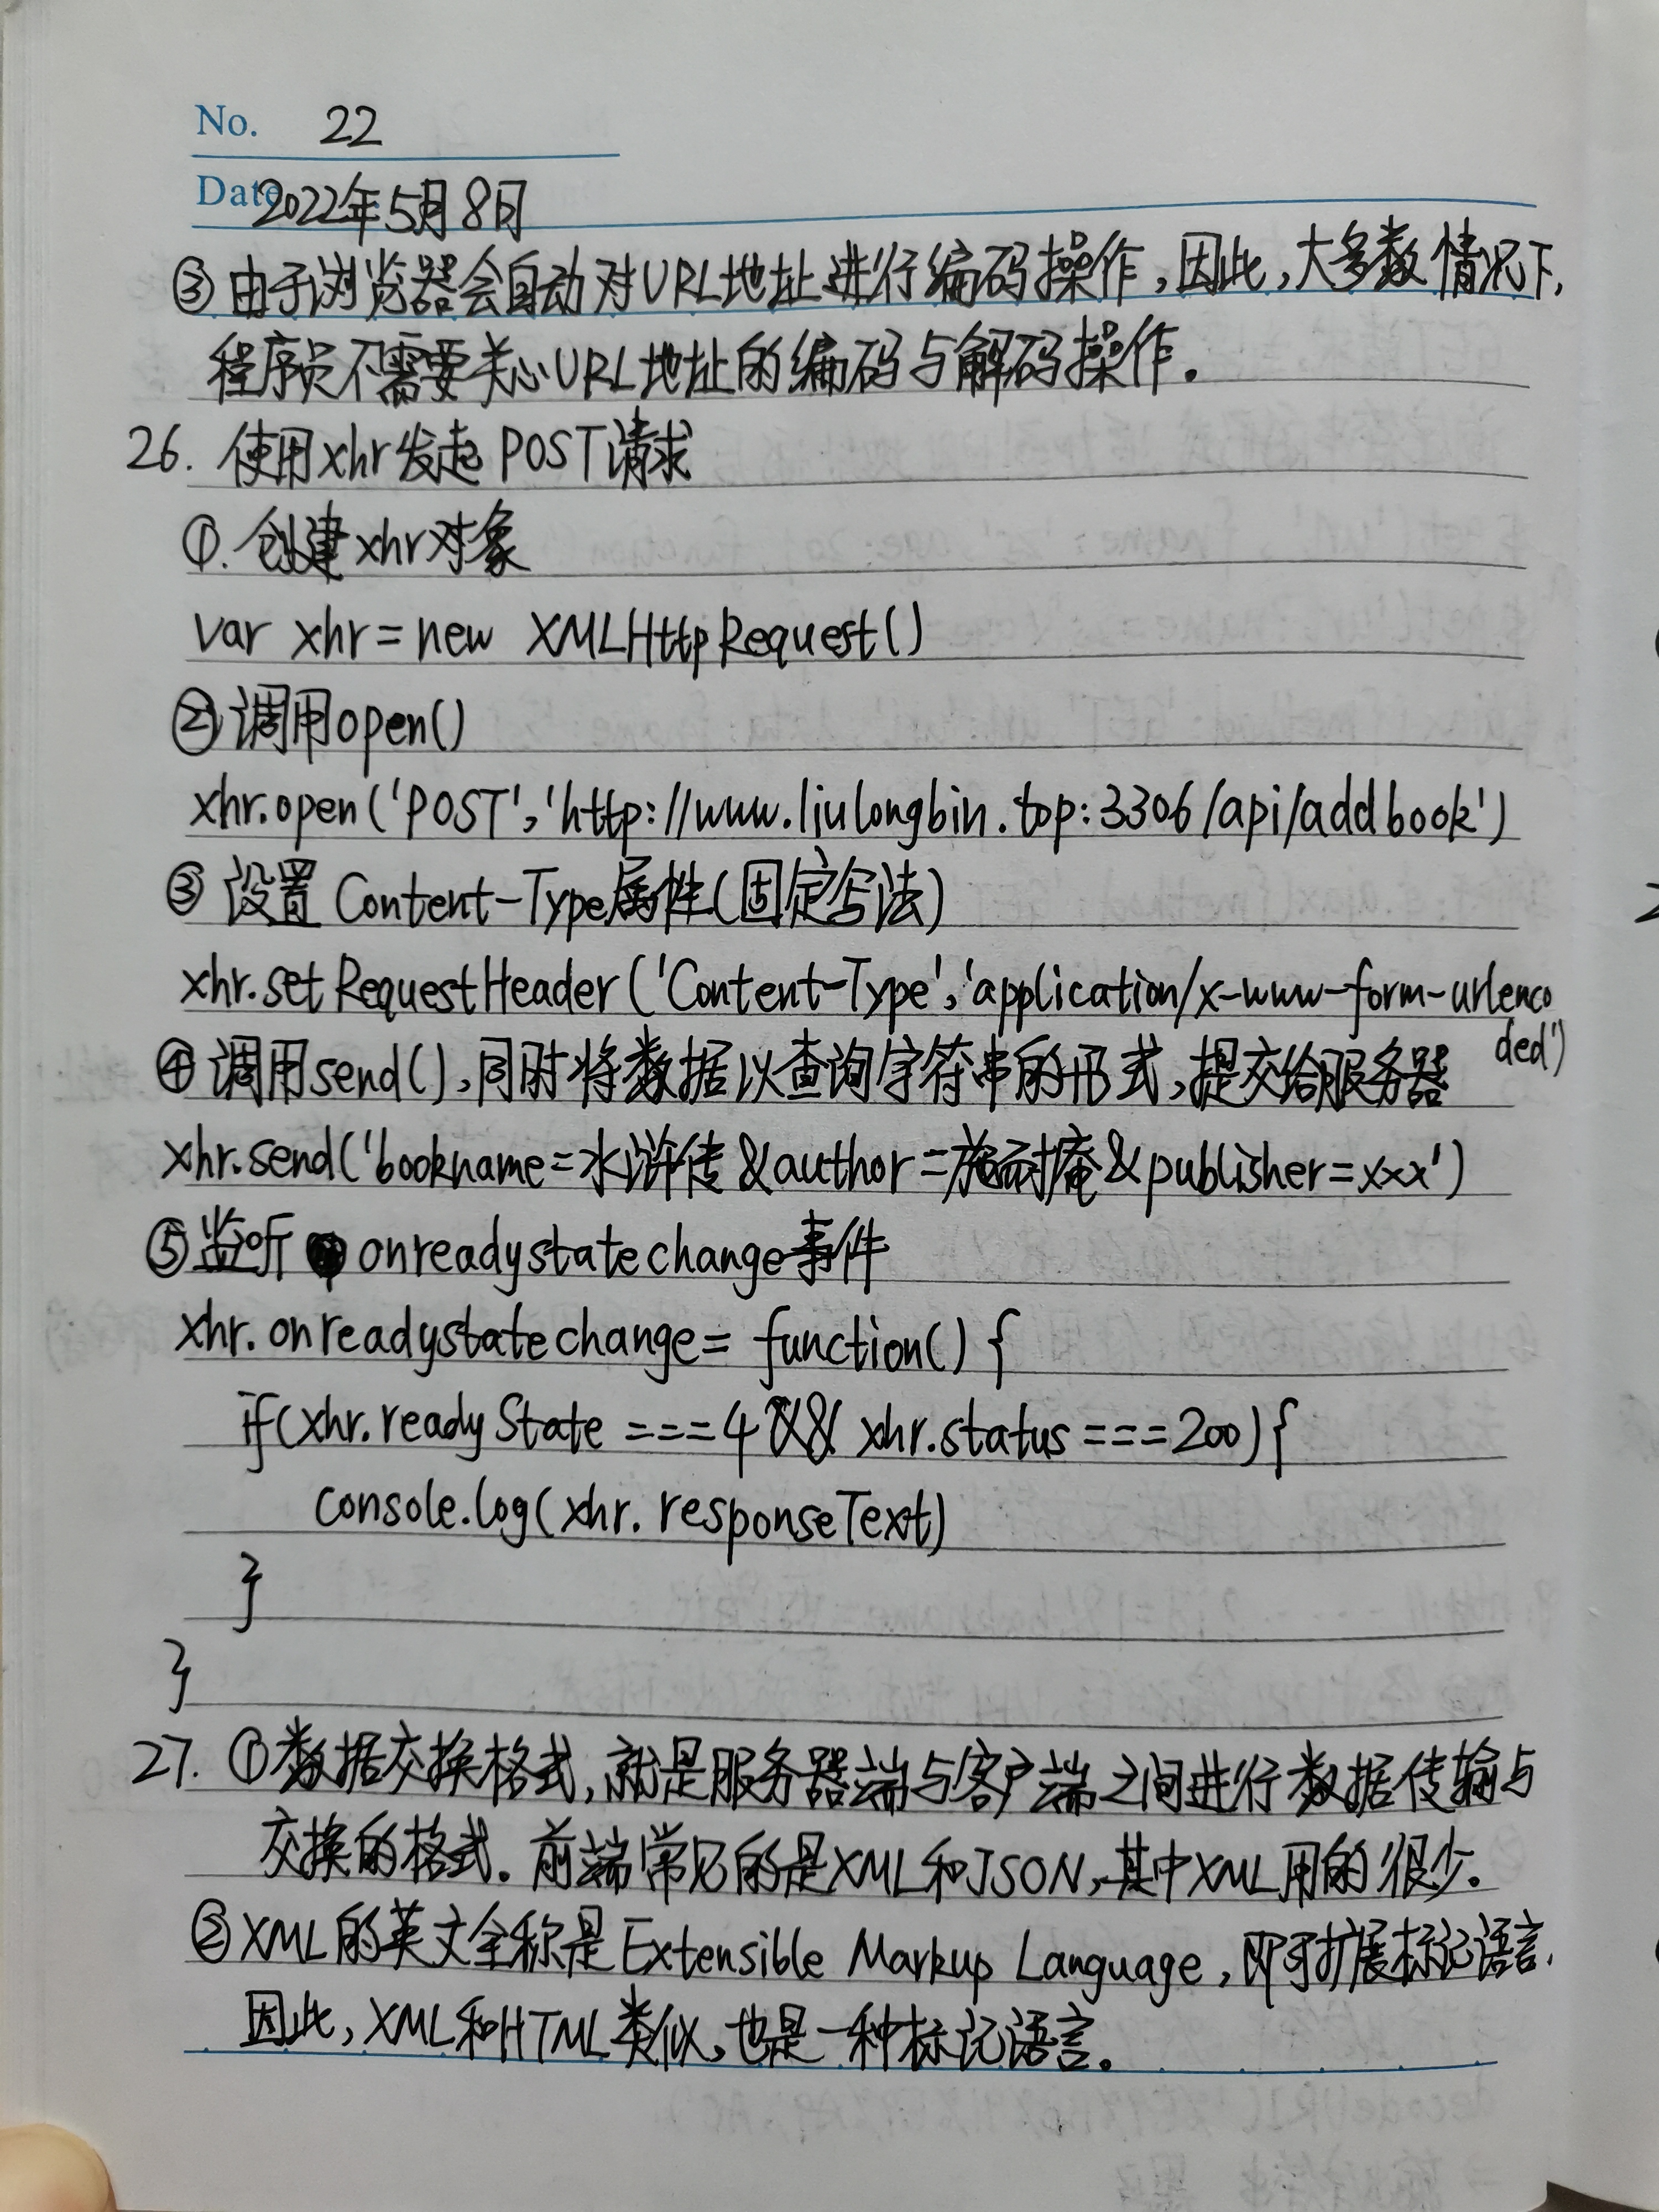 No. 22
Date 2022年5月8日
③由于浏览器会自动对URL地址进行编码操作,因此,大多数情况下,
程序员不需要关心URL地址的编码与解码操作.
26. 使用xhr发起POST请求
①.创建xhr对象
var xhr=new XMLHttpRequest()
②调用open()
xhr.open('POST','http://www.liulongbin.top:3306/api/addbook')
③设置Content-Type属性(固定写法)
xhr.setRequestHeader('Content-Type','application/x-www-form-urlenco
ded')
④调用send(),同时将数据以查询字符串的形式,提交给服务器
xhr.send('bookname=水浒传&author=施耐庵&publisher=xxx')
⑤监听onreadystatechange事件
xhr.onreadystatechange= function() {
if(xhr.readyState ===4 && xhr.status ===200){
console.log(xhr.responseText)
}
}
27. ①数据交换格式,就是服务器端与客户端之间进行数据传输与
交换的格式.前端常见的是XML和JSON,其中XML用的很少.
②XML的英文全称是Extensible Markup Language,即可扩展标记语言.
因此,XML和HTML类似,也是一种标记语言。